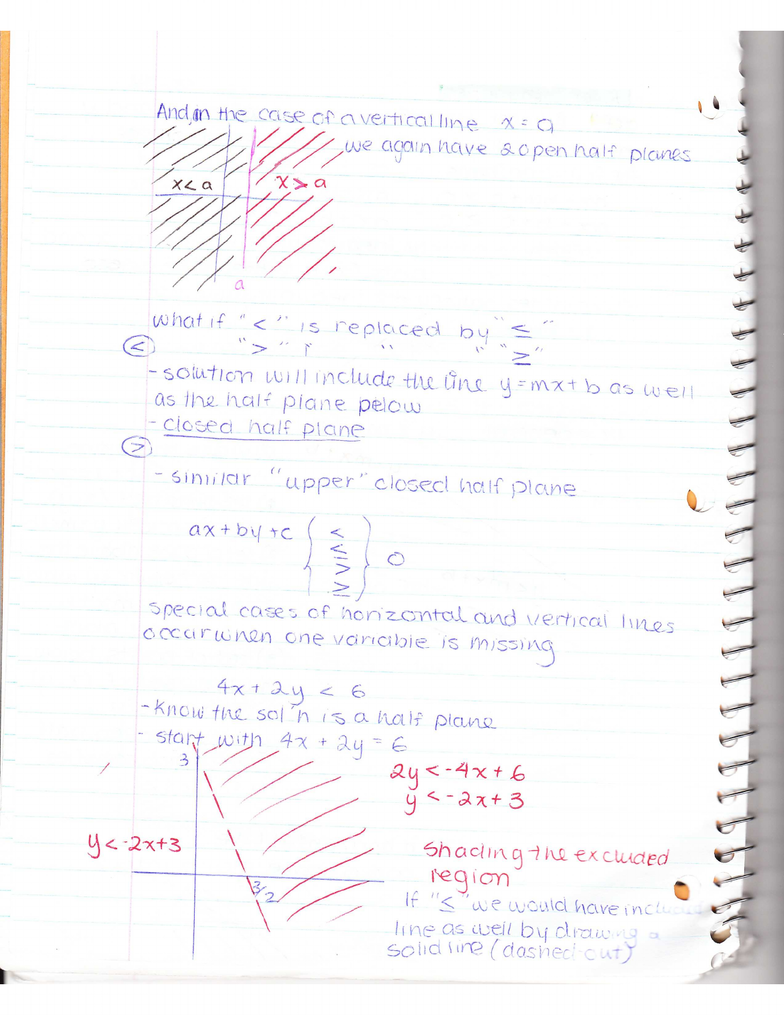 And in the case of a vertical line x = a
we again have 2 open half planes
x < a
x > a
a
what if "<" is replaced by "≤"
">" " " "≥"
<
- solution will include the line y = mx + b as well
as the half plane below
- closed half plane
>
- similar "upper" closed half plane
ax + by + c { < ≤ > ≥ } 0
special cases of horizontal and vertical lines
occur when one variable is missing
4x + 2y < 6
- Know the sol'n is a half plane
- start with 4x + 2y = 6
3
2y < -4x + 6
y < -2x + 3
y < -2x+3
3/2
Shading the excluded
region
If "≤" we would have
line as well by drawing a
solid line (dashed-out)